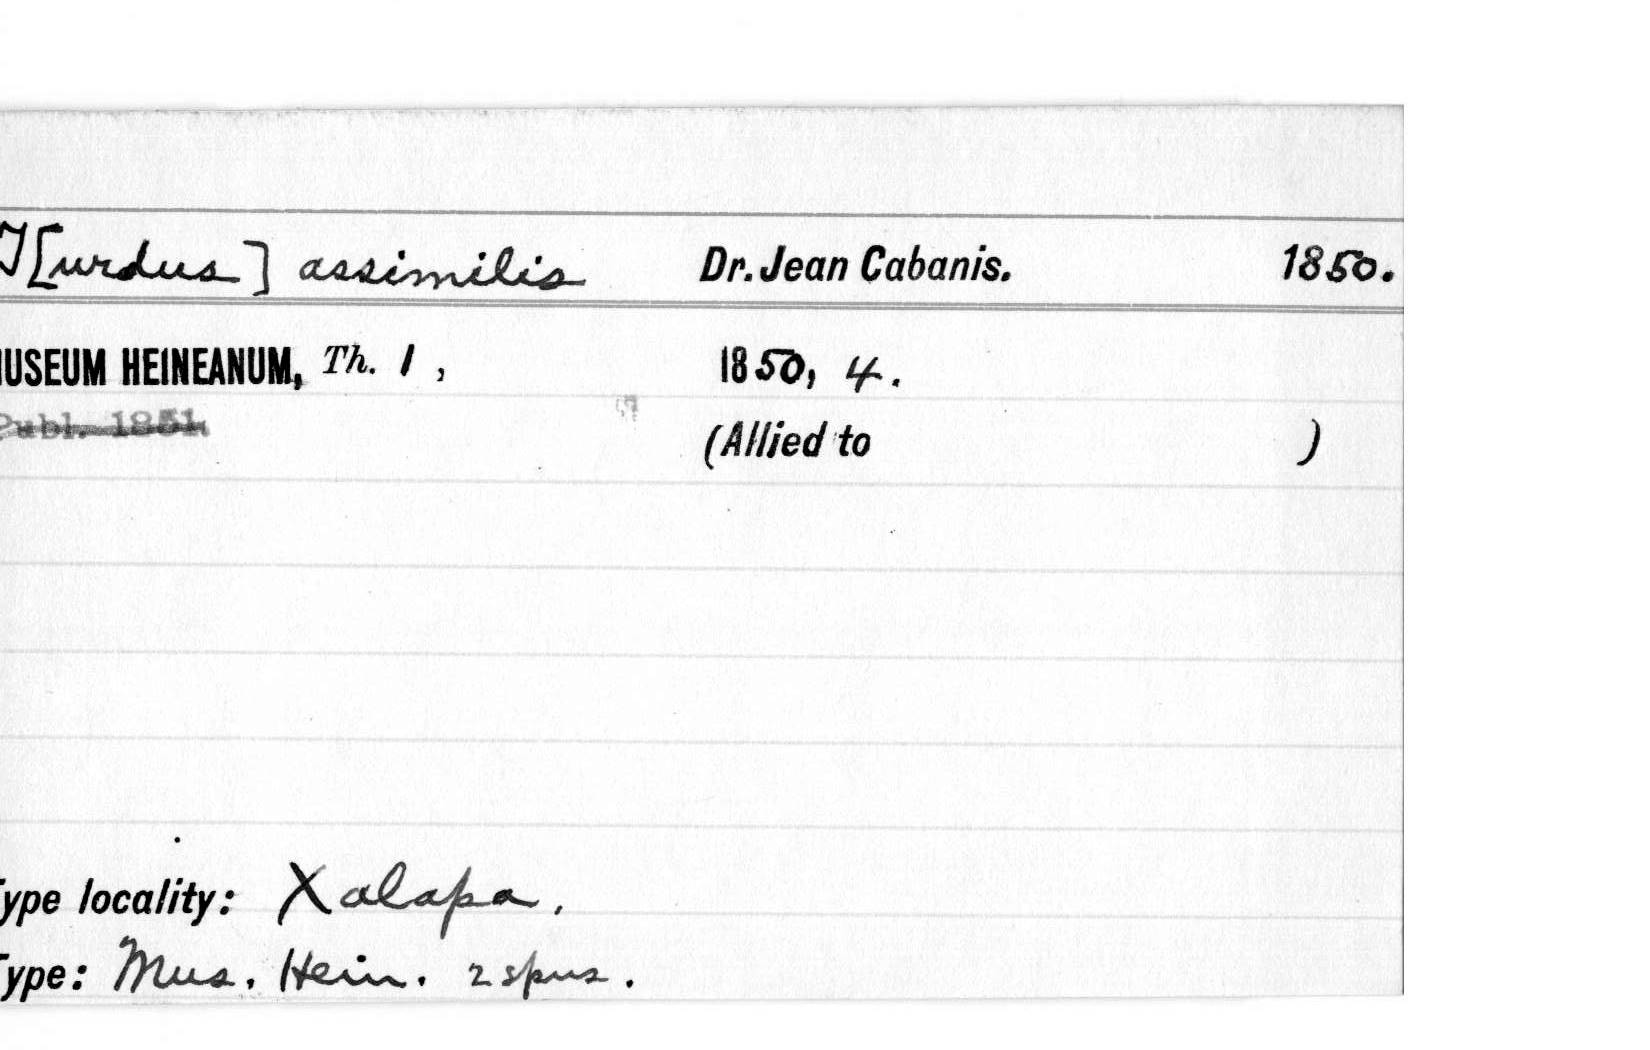 T[urdus] assimilis Dr. Jean Cabanis. 1850.
MUSEUM HEINEANUM, Th. 1, 1850, 4.
Publ. 1851.
(Allied to )
Type locality: Xalapa.
Type: Mus. Hein. 2 spns.